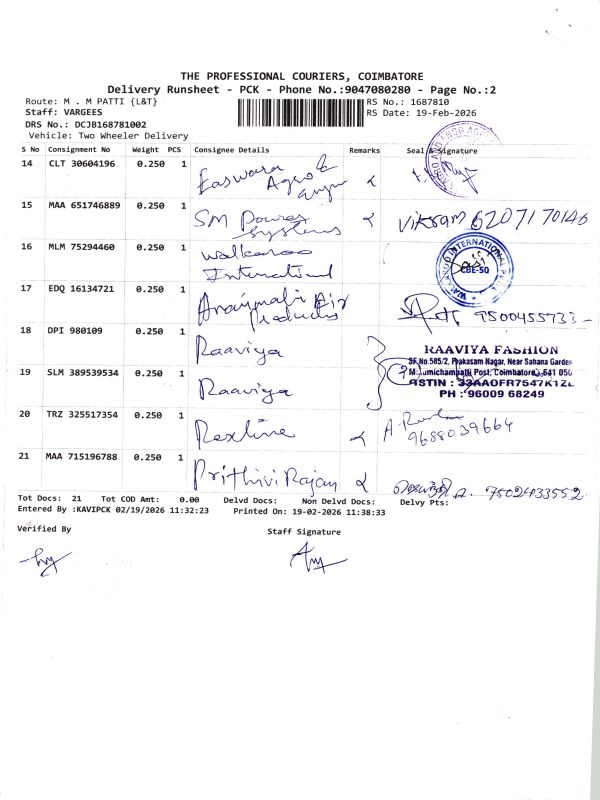 THE PROFESSIONAL COURIERS, COIMBATORE
Delivery Runsheet - PCK - Phone No.:9047080280 - Page No.:2
Route: M . M PATTI {L&T}
RS No.: 1687810
Staff: VARGEES
RS Date: 19-Feb-2026
DRS No.: DCJB168781002
Vehicle: Two Wheeler Delivery
S No Consignment No Weight PCS Consignee Details Remarks Seal & Signature
14 CLT 30604196 0.250 1 Easwara Agro &
15 MAA 651746889 0.250 1 SM Power Systems Vikram 6207170146
16 MLM 75294460 0.250 1 Walkaroo International
WALKAROO INTERNATIONAL
CBE-50
17 EDQ 16134721 0.250 1 Annaimalai Air Products 9500455733
18 DPI 980109 0.250 1 Raaviya
RAAVIYA FASHION
SF.No.585/2, Prakasam Nagar, Near Sahana Garden
Post, Coimbatore - 641 050
GSTIN : 33AAOFR7547K1Z
PH : 96009 68249
19 SLM 389539534 0.250 1 Raaviya
20 TRZ 325517354 0.250 1 Rexline
9688039664
21 MAA 715196788 0.250 1 Prithivi Rajan A. 7502433552
Tot Docs: 21 Tot COD Amt: 0.00 Delvd Docs: Non Delvd Docs: Delvy Pts:
Entered By :KAVIPCK 02/19/2026 11:32:23 Printed On: 19-02-2026 11:38:33
Verified By Staff Signature